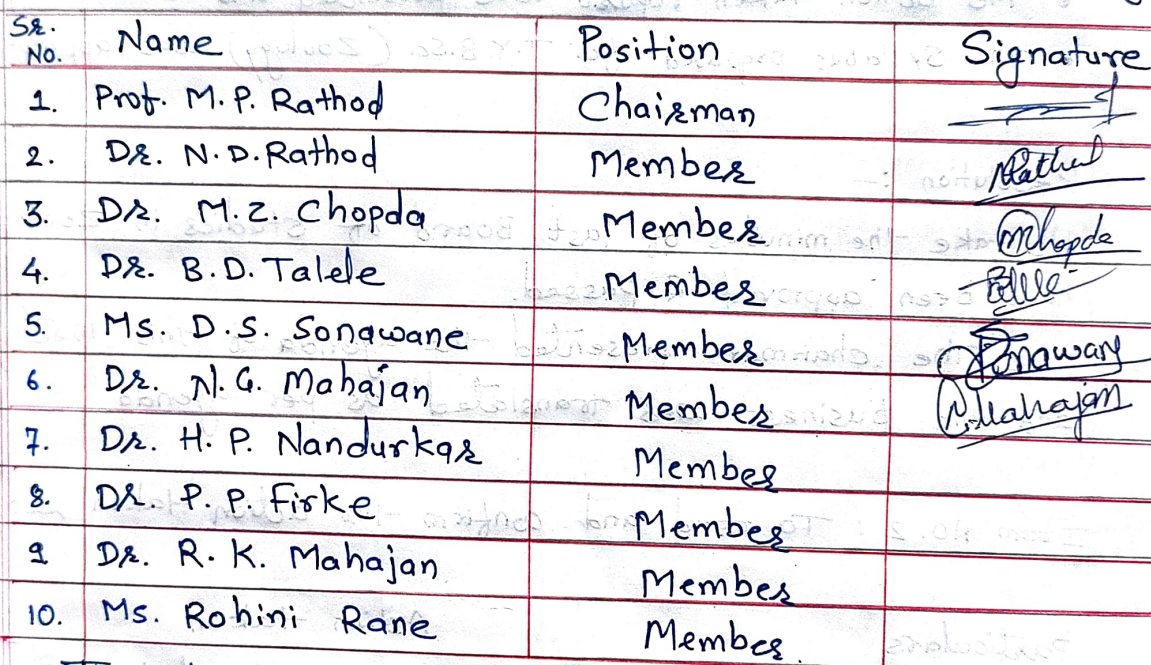 Sr. No. Name Position Signature
1. Prof. M. P. Rathod Chairman
2. Dr. N. D. Rathod Member Rathod
3. Dr. M. Z. Chopda Member Mchopda
4. Dr. B. D. Talele Member
5. Ms. D. S. Sonawane Member Sonawane
6. Dr. N. G. Mahajan Member N. Mahajan
7. Dr. H. P. Nandurkar Member
8. Dr. P. P. Firke Member
9 Dr. R. K. Mahajan Member
10. Ms. Rohini Rane Member